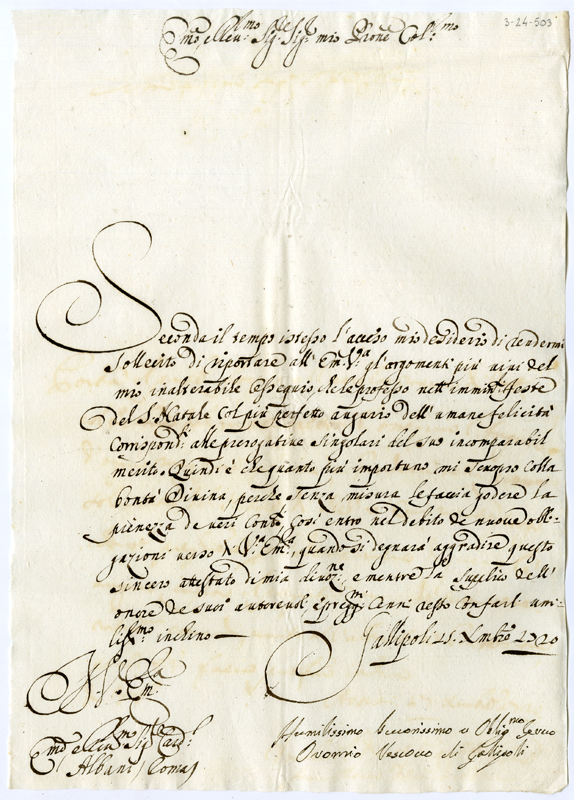 3-24-503
Em̃o e Reu.mo Sig.re Sig.r mio Pron̄e Col.mo
Seconda il tempo istesso l'acceso mio desiderio di rendermi
sollecito di riportare all' Em.V.ra gl'argomenti più uiui del
mio inalterabile ossequio, che le professo nell' immin.ti feste
del S. Natale col più perfetto augurio dell' umane felicità
corrispond.ti alle prerogatiue singolari del suo incomparabil
merito. Quindi è che quanto più importuno mi scuopro colla
bontà Diuina, perche senza misura le faccia godere la
pienezza de ueri Conti, così entro nel debito de nuoue obli-
gazioni uerso V.ra Em.a, quando si degnarà aggradire questo
sincero attestato di mia diuoz.ne, e mentre la supplico dell'
onore de suoi autoreuoli, e preggi.mi cenni resto con farle umi-
liss.mo inchino
Gallipoli 25. Xmbre 1720
Em.
Em̃o e Reu.mo Sig.r Card.l
Albani Roma
Humilissimo Deuotissimo e Oblig.mo Seruo
Vescouo di Gallipoli